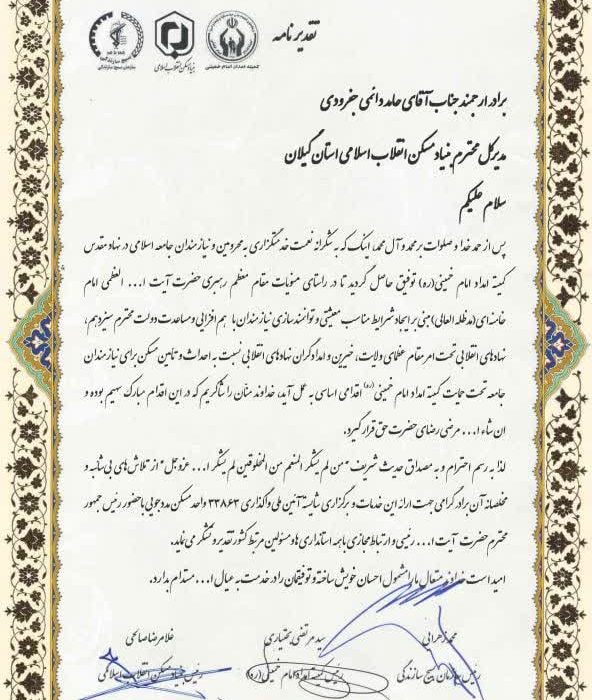 تقدیرنامه
کمیته امداد امام خمینی
بنیاد مسکن انقلاب اسلامی
سازمان بسیج سازندگی
برادر ارجمند جناب آقای حامد دانمی جفرودی
مدیرکل محترم بنیاد مسکن انقلاب اسلامی استان گیلان
سلام علیکم
پس از حمد خدا و صلوات بر محمد و آل محمد، اینک که به شکرانه نعمت خدمتگزاری به محرومین و نیازمندان جامعه اسلامی در نهاد مقدس
کمیته امداد امام خمینی(ره) توفیق حاصل گردید تا در راستای منویات مقام معظم رهبری حضرت آیت ا... العظمی امام
خامنه‌ای(مدظله العالی) مبنی بر ایجاد شرایط مناسب معیشتی و توانمندسازی نیازمندان با هم افزایی و مساعدت دولت محترم سیزدهم،
نهادهای انقلابی تحت امر مقام عظمای ولایت، خیرین و امدادگران نهادهای انقلابی نسبت به احداث و تأمین مسکن برای نیازمندان
جامعه تحت حمایت کمیته امداد امام خمینی (ره) اقدامی اساسی به عمل آید، خداوند منان را شاکریم که در این اقدام مبارک سهیم بوده و
ان شاء ا... مرضی رضای حضرت حق قرار گیرد.
لذا به رسم احترام و به مصداق حدیث شریف "من لم یشکر المنعم من المخلوقین لم یشکر ا... عزوجل" از تلاش های بی شائبه و
مخلصانه آن برادر گرامی جهت ارائه این خدمات و برگزاری شایسته آئین ملی واگذاری ۳۳۸۶۳ واحد مسکن مددجویی با حضور رئیس جمهور
محترم حضرت آیت ا... رئیسی و ارتباط مجازی با همه استانداری ها و مسئولین مرتبط کشور تقدیر و تشکر می نماید.
امید است خداوند متعال ما را مشمول احسان خویش ساخته و توفیقمان را در خدمت به عیال ا... مستدام بدارد.
محمد زهرائی سید مرتضی بختیاری غلامرضا صالحی
رئیس سازمان بسیج سازندگی رئیس کمیته امداد امام خمینی(ره) رئیس بنیاد مسکن انقلاب اسلامی